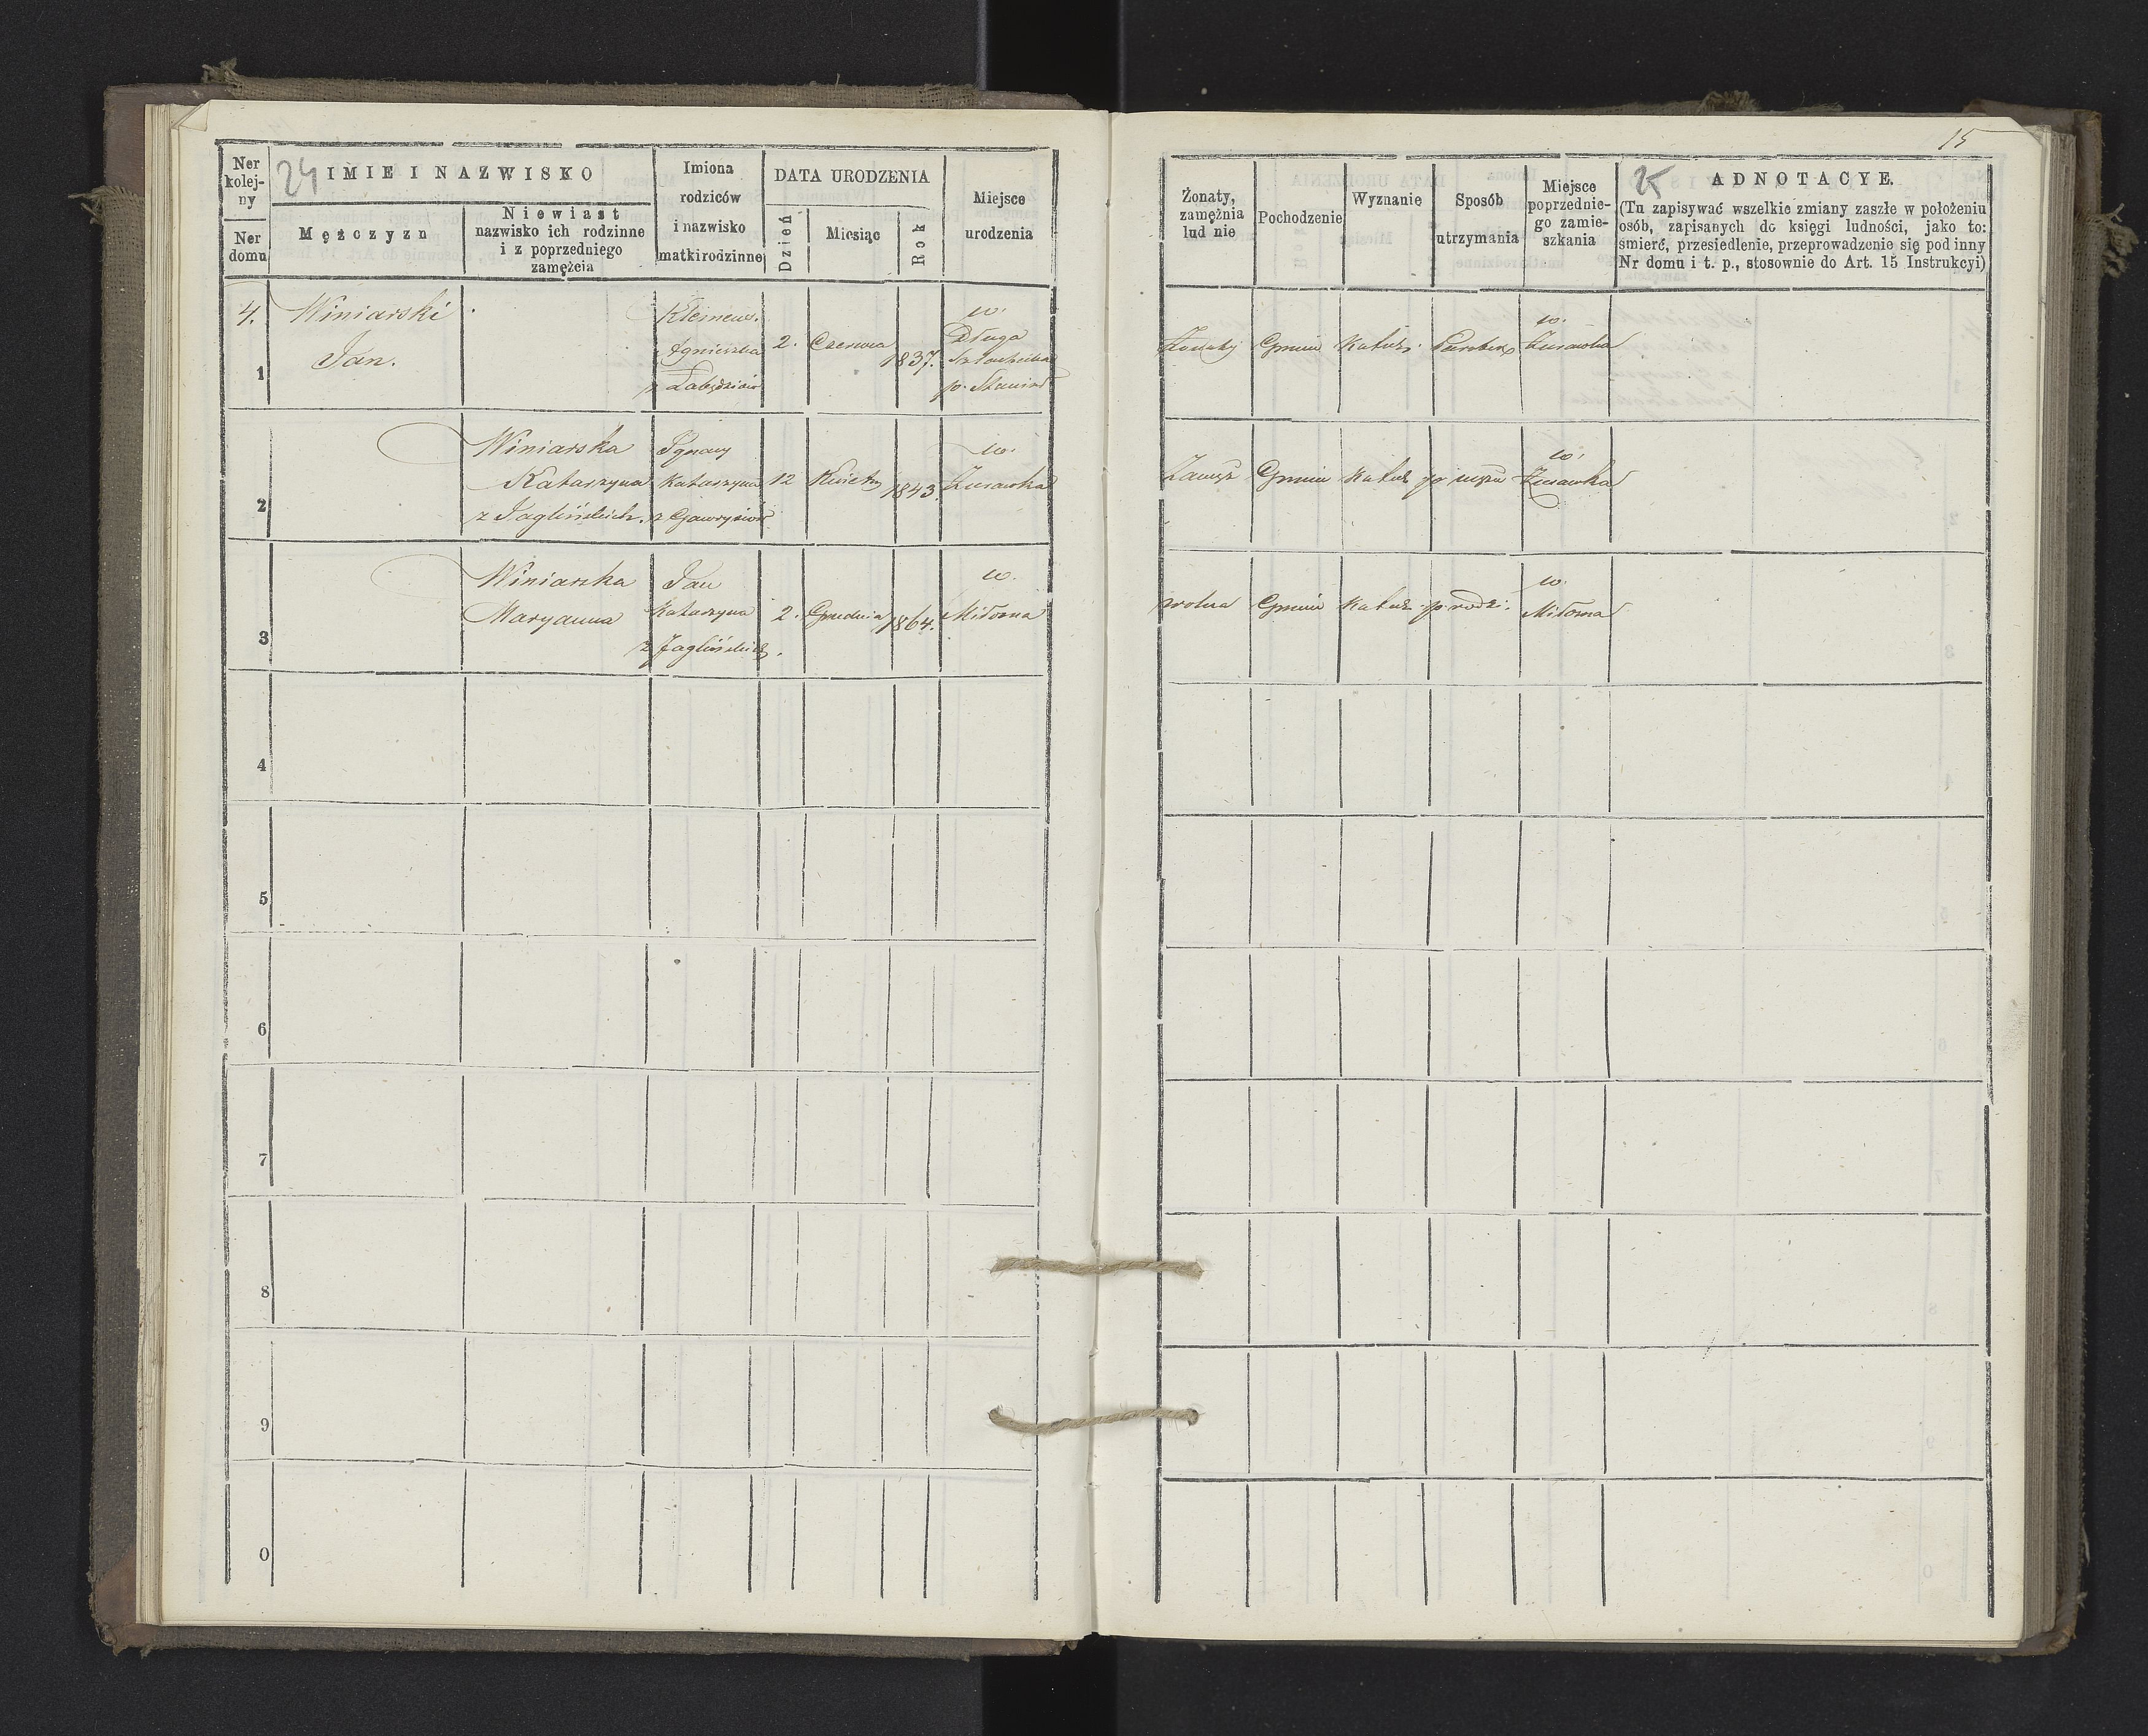 24
15
25
Ner kolejny
Ner domu
IMIE I NAZWISKO
Mężczyzn
Niewiast
nazwisko ich rodzinne
i z poprzedniego
zamężcia
Imiona
rodziców
i nazwisko
matki rodzinne
DATA URODZENIA
Dzień
Miesiąc
Rok
Miejsce
urodzenia
Żonaty,
zamężnia
lud nie
Pochodzenie
Wyznanie
Sposób
utrzymania
Miejsce
poprzednie-
go zamie-
szkania
ADNOTACYE.
(Tu zapisywać wszelkie zmiany zaszłe w położeniu
osób, zapisanych do księgi ludności, jako to:
śmierć, przesiedlenie, przeprowadzenie się pod inny
Nr domu i t. p., stosownie do Art. 15 Instrukcyi)
4.
1
Winiarski
Jan.
Klemens.
Agnieszka
2.
Czerwca
1837.
w.
Długa
Szlachecka
Żonaty
Gmin
Katol.
Parobek
w.
Żurawka
2
Winiarska
Katarzyna
z Jaglińskich.
Ignacy
Katarzyna
12
Kwietn
1843.
w.
Żurawka
Zamęż
Gmin
Katol
po mężu
w.
Żurawka
3
Winiarska
Maryanna
Jan
Katarzyna
z Jaglińskich.
2.
Grudnia
1864.
w.
Miłosna
wolna
Gmin
Katol
p. rodzi.
w.
Miłosna
4
5
6
7
8
9
0